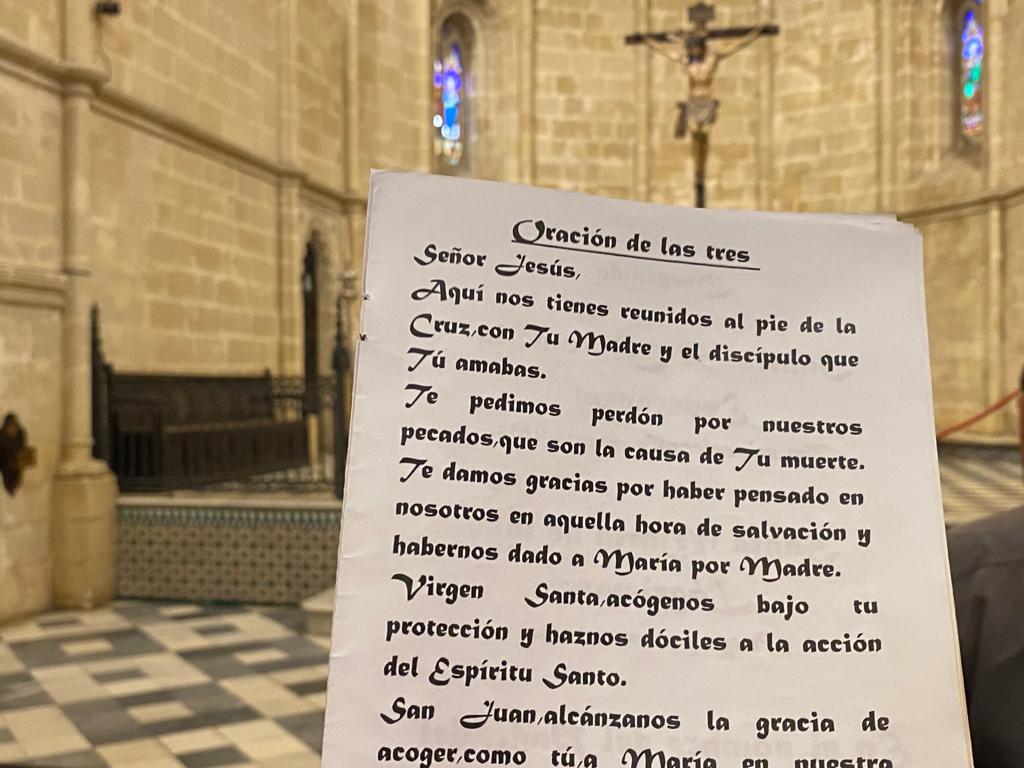 Oración de las tres
Señor Jesús,
Aquí nos tienes reunidos al pie de la
Cruz,con Tu Madre y el discípulo que
Tú amabas.
Te pedimos perdón por nuestros
pecados,que son la causa de Tu muerte.
Te damos gracias por haber pensado en
nosotros en aquella hora de salvación y
habernos dado a María por Madre.
Virgen Santa,acógenos bajo tu
protección y haznos dóciles a la acción
del Espíritu Santo.
San Juan,alcánzanos la gracia de
acoger,como tú,a María en nuestra